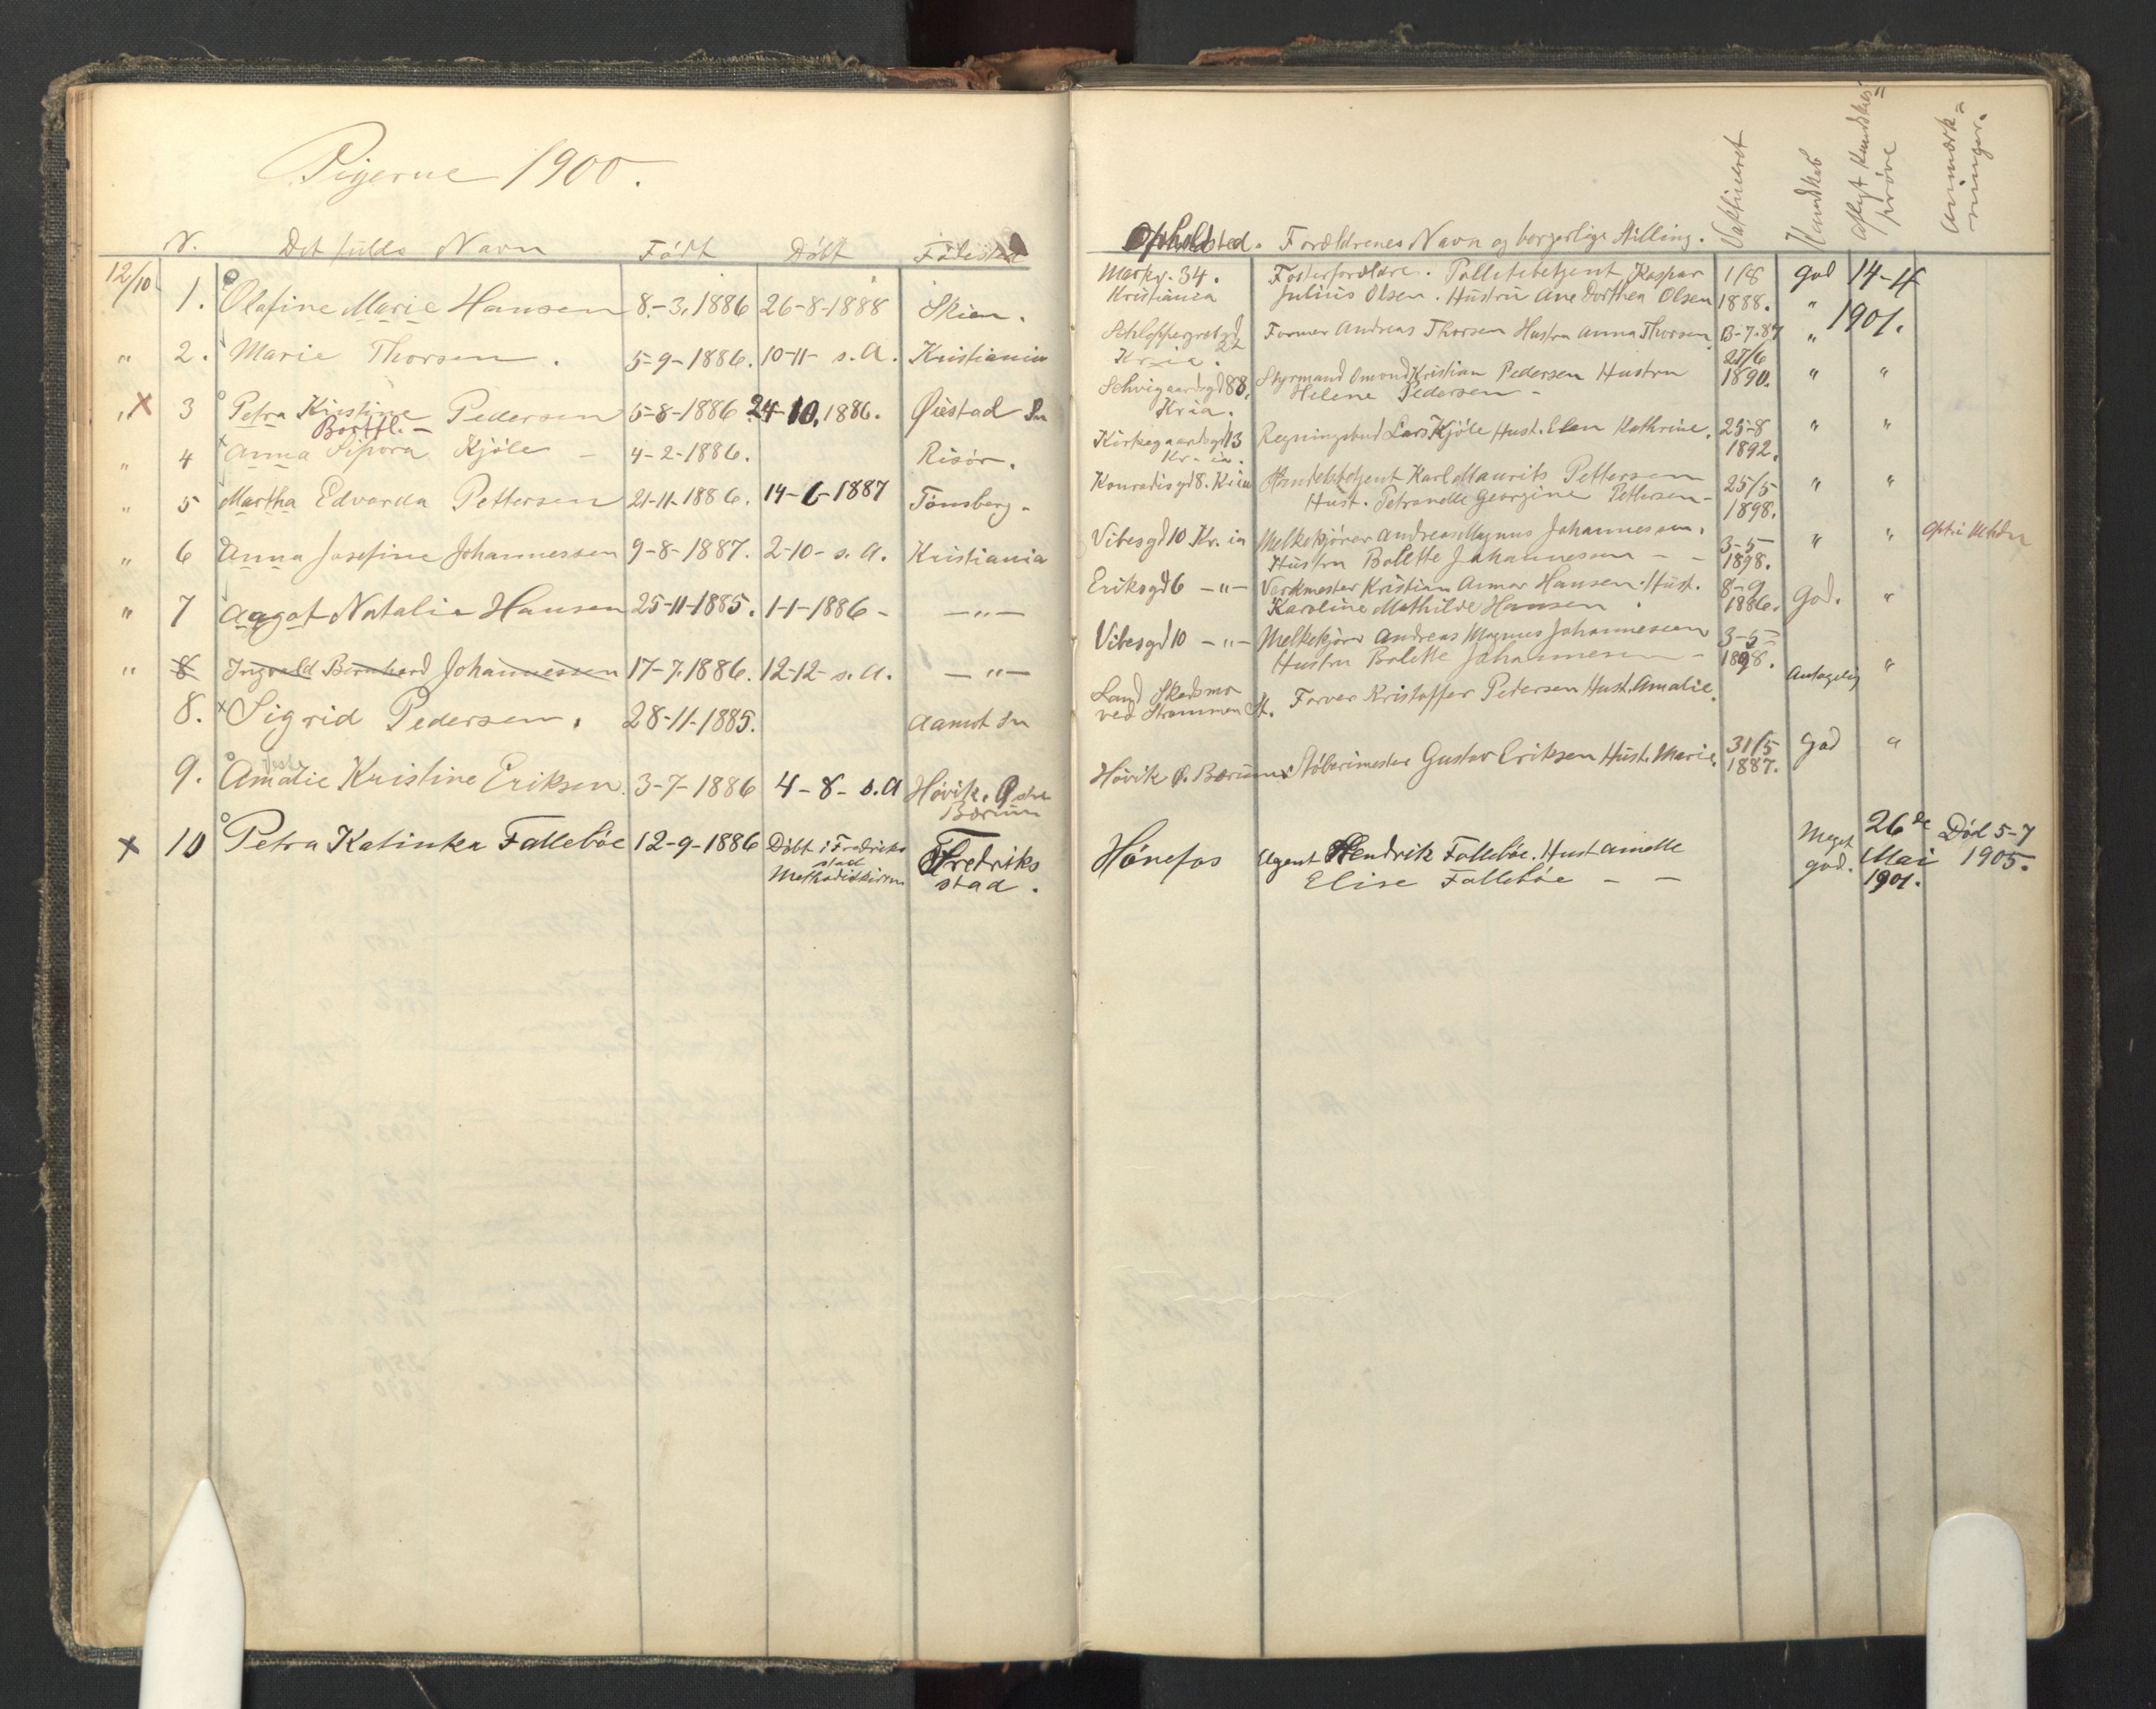 Pigerne 1900.
N. Det fulde Navn Født Døbt Fødested
12/10 1. Olafine Marie Hansen 8.-3, 1886 26-8-1888 Skien.
" 2. Marie Thorsen. 5-9-1886. 10-11- s.A. Kristiania
" X 3 Petra Kristine Pedersen 5-8-1886 24-10, 1886. Øiestad Sn
Bortfl. -
" 4 Anna Sipora Kjöle - 4-2-1886. Risør.
" 5 Martha Edvarda Pettersen 21-11-1886. 14-6-1887 Tönsberg.
" 6 Anna Josefine Johannessen 9-8-1887. 2-10- s.A. Kristiania
" 7 Aagot Natalie Hansen 25-11-1885. 1-1-1886 - - " -
" 8 Ingvald Bernhard Johannessen 17-7.1886. 12-12- s.A. - " -
8. x Sigrid Pedersen. 28-11-1885. Aamot Sn
9. Amalie Kristine Eriksen. 3-7-1886 4-8- s.A Hövik. Östre
Bærum
x 10 Petra Katinka Falleböe 12-9-1886 Döbt i Fredriks
stad
Fredriks
stad.
Vaksineret
Kundskab
aflagt Kundskabs=
prøve
Anmærk=
ninger.
Opholdsted. Forældrenes Navn og borgerlige Stilling.
Markv. 34. Fosterforældre. Politibetjent Kaspar 1/8 god 14-4
Kristiania Julius Olsen. Hustru Ane Dorthea Olsen 1888. " 1901.
22 Former Andreas Thorsen Hustru Anna Thorsen. 13-7.87 "
Kr-ia.
Schvigaardsgd 88. Styrmand Omond Kristian Pedersen Hustru 27/6 " "
Kria. Helene Pedersen - 1890.
Kirkegaardsgd 13 Regningsbud Lars Kjöle Hust. Elen Kathrine. 25-8 " "
Kr-ia. 1892.
Konradisgd 8. Kria Karl Maurits Pettersen 25/5 " "
Hust. Petronelle Georgine Pettersen - 1898.
Vibesgd 10 Kr.ia Melkekjörer Andreas Magnus Johannessen. 3-5- " "
Hustru Bolette Johannessen - - 1898.
Eriksgd 6 - " - Verkmester Kristian Anmar Hansen. Hust. 8-9 God. "
Karoline Mathilde Hansen. 1886.
Vibesgd 10 - " - Melkekjörer Andreas Magnus Johannessen 3-5-
Hustru Bolette Johannessen - 1898.
Skedsmo Farver Kristoffer Pedersen Hust. Amalie. Antagelig "
ved Strømmen St.
Hövik Ö. Bærum. Støberimester Gustav Eriksen Hust. Marie. 31/5 God "
1887.
Hönefos Agent Hendrik Falleböe. Hust Amelle Meget 26de Död 5-7
Elise Falleböe - - god. Mai 1905.
1901.